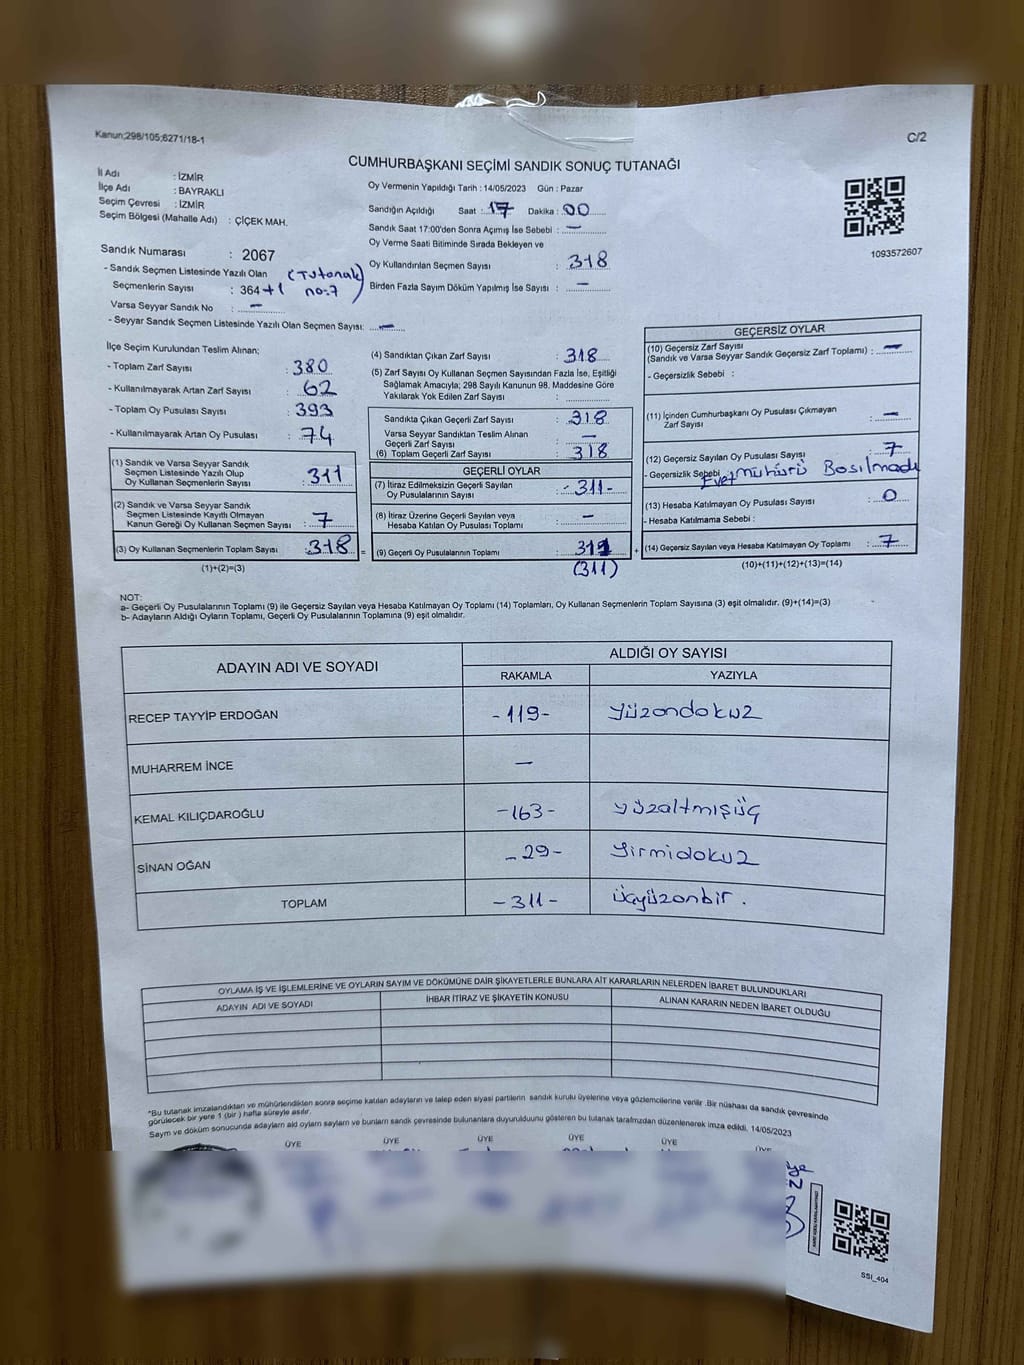 Kanun;298/105;6271/18-1
C/2
CUMHURBAŞKANI SEÇİMİ SANDIK SONUÇ TUTANAĞI
İl Adı : İZMİR
İlçe Adı : BAYRAKLI
Seçim Çevresi : İZMİR
Seçim Bölgesi (Mahalle Adı) : ÇİÇEK MAH.
Oy Vermenin Yapıldığı Tarih : 14/05/2023 Gün : Pazar
Sandığın Açıldığı Saat : 17 Dakika : 00
Sandık Saat 17:00'den Sonra Açımış İse Sebebi : —
Oy Verme Saati Bitiminde Sırada Bekleyen ve
Oy Kullandırılan Seçmen Sayısı : 318
Birden Fazla Sayım Döküm Yapılmış İse Sayısı : —
1093572607
Sandık Numarası : 2067
- Sandık Seçmen Listesinde Yazılı Olan (Tutanak
Seçmenlerin Sayısı : 364+1 no:7)
Varsa Seyyar Sandık No : —
- Seyyar Sandık Seçmen Listesinde Yazılı Olan Seçmen Sayısı: —
İlçe Seçim Kurulundan Teslim Alınan;
- Toplam Zarf Sayısı : 380
- Kullanılmayarak Artan Zarf Sayısı : 62
- Toplam Oy Pusulası Sayısı : 393
- Kullanılmayarak Artan Oy Pusulası : 74
(1) Sandık ve Varsa Seyyar Sandık
Seçmen Listesinde Yazılı Olup
Oy Kullanan Seçmenlerin Sayısı : 311
(2) Sandık ve Varsa Seyyar Sandık
Seçmen Listesinde Kayıtlı Olmayan
Kanun Gereği Oy Kullanan Seçmen Sayısı : 7
(3) Oy Kullanan Seçmenlerin Toplam Sayısı : 318 =
(1)+(2)=(3)
(4) Sandıktan Çıkan Zarf Sayısı : 318
(5) Zarf Sayısı Oy Kullanan Seçmen Sayısından Fazla İse, Eşitliği
Sağlamak Amacıyla; 298 Sayılı Kanunun 98. Maddesine Göre
Yakılarak Yok Edilen Zarf Sayısı :
Sandıkta Çıkan Geçerli Zarf Sayısı : 318
Varsa Seyyar Sandıktan Teslim Alınan
Geçerli Zarf Sayısı : —
(6) Toplam Geçerli Zarf Sayısı : 318
GEÇERLİ OYLAR
(7) İtiraz Edilmeksizin Geçerli Sayılan
Oy Pusulalarının Sayısı : -311-
(8) İtiraz Üzerine Geçerli Sayılan veya
Hesaba Katılan Oy Pusulası Toplamı : —
(9) Geçerli Oy Pusulalarının Toplamı : 311 +
(311)
GEÇERSİZ OYLAR
(10) Geçersiz Zarf Sayısı
(Sandık ve Varsa Seyyar Sandık Geçersiz Zarf Toplamı) : —
- Geçersizlik Sebebi :
(11) İçinden Cumhurbaşkanı Oy Pusulası Çıkmayan
Zarf Sayısı : —
(12) Geçersiz Sayılan Oy Pusulası Sayısı : 7
- Geçersizlik Sebebi : Evet mühürü Basılmadı
(13) Hesaba Katılmayan Oy Pusulası Sayısı : 0
- Hesaba Katılmama Sebebi :
(14) Geçersiz Sayılan veya Hesaba Katılmayan Oy Toplamı : 7
(10)+(11)+(12)+(13)=(14)
NOT:
a- Geçerli Oy Pusulalarının Toplamı (9) ile Geçersiz Sayılan veya Hesaba Katılmayan Oy Toplamı (14) Toplamları, Oy Kullanan Seçmenlerin Toplam Sayısına (3) eşit olmalıdır. (9)+(14)=(3)
b- Adayların Aldığı Oyların Toplamı, Geçerli Oy Pusulalarının Toplamına (9) eşit olmalıdır.
ADAYIN ADI VE SOYADI
ALDIĞI OY SAYISI
RAKAMLA YAZIYLA
RECEP TAYYİP ERDOĞAN -119- yüzondokuz
MUHARREM İNCE —
KEMAL KILIÇDAROĞLU -163- yüzaltmışüç
SİNAN OĞAN -29- yirmidokuz
TOPLAM -311- üçyüzonbir.
OYLAMA İŞ VE İŞLEMLERİNE VE OYLARIN SAYIM VE DÖKÜMÜNE DAİR ŞİKAYETLERLE BUNLARA AİT KARARLARIN NELERDEN İBARET BULUNDUKLARI
ADAYIN ADI VE SOYADI İHBAR İTİRAZ VE ŞİKAYETİN KONUSU ALINAN KARARIN NEDEN İBARET OLDUĞU
*Bu tutanak imzalandıktan ve mühürlendikten sonra seçime katılan adayların ve talep eden siyasi partilerin sandık kurulu üyelerine veya gözlemcilerine verilir .Bir nüshası da sandık çevresinde
görülecek bir yere 1 (bir ) hafta süreyle asılır.
Sayım ve döküm sonucunda adayların ald oyların sayların ve bunların sandık çevresinde bulunanlara duyurulduunu gösteren bu tutanak tarafmızdan düzenlenerek imza edildi. 14/05/2023
ÜYE ÜYE ÜYE ÜYE ÜYE ÜYE
SSI_404